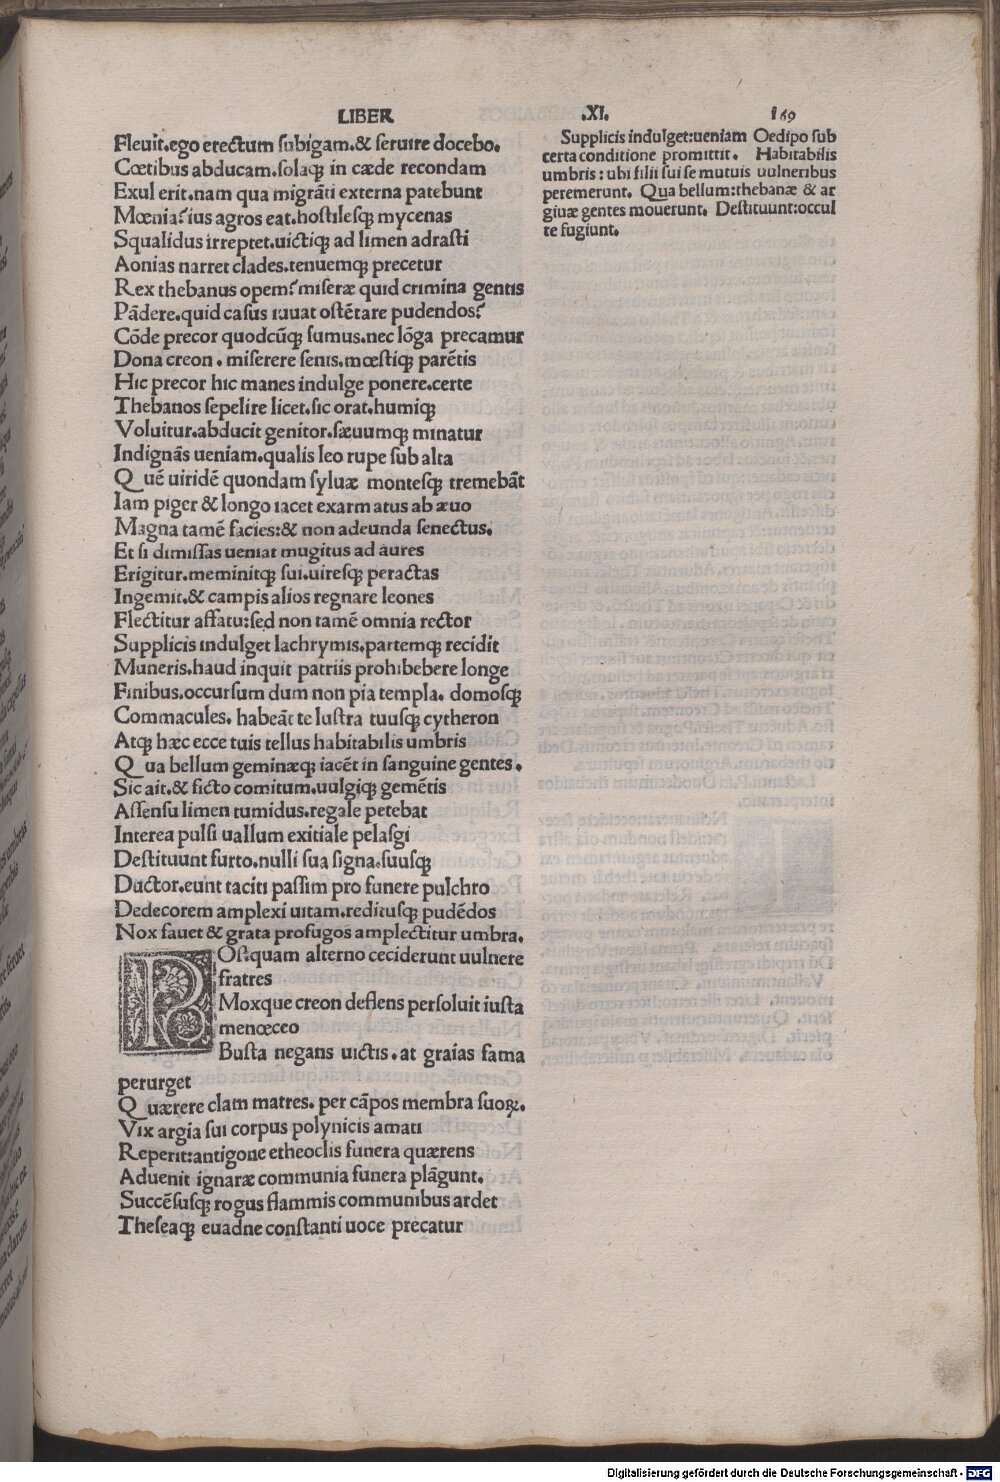 LIBER .XI. 169
Fleuit.ego erectum subigam.& seruire docebo.
Cœtibus abducam.solaq; in cæde recondam
Exul erit.nam qua migrãti externa patebunt
Mœnia?ius agros eat.hostilesq; mycenas
Squalidus irreptet.uictiq; ad limen adrasti
Aonias narret clades.tenuemq; precetur
Rex thebanus opem?miseræ quid crimina gentis
Pãdere.quid casus iuuat ostẽtare pudendos?
Cõde precor quodcũq; sumus.nec lõga precamur
Dona creon. miserere senis.mœstiq; parẽtis
Hic precor hic manes indulge ponere.certe
Thebanos sepelire licet.sic orat.humiq;
Voluitur.abducit genitor.sæuumq; minatur
Indignãs ueniam.qualis leo rupe sub alta
Quẽ uiridẽ quondam syluæ montesq; tremebãt
Iam piger & longo iacet exarmatus ab æuo
Magna tamẽ facies:& non adeunda senectus.
Et si dimissas ueniat mugitus ad aures
Erigitur.meminitq; sui.uiresq; peractas
Ingemit.& campis alios regnare leones
Flectitur affatu:sed non tamẽ omnia rector
Supplicis indulget lachrymis.partemq; recidit
Muneris.haud inquit patriis prohibebere longe
Finibus.occursum dum non pia templa. domosq;
Commacules. habeãt te lustra tuusq; cytheron
Atq; hæc ecce tuis tellus habitabilis umbris
Qua bellum geminæq; iacẽt in sanguine gentes.
Sic ait.& ficto comitum.uulgiq; gemẽtis
Assensu limen tumidus.regale petebat
Interea pulsi uallum exitiale pelasgi
Destituunt furto.nulli sua signa.suusq;
Ductor.eunt taciti passim pro funere pulchro
Dedecorem amplexi uitam.reditusq; pudẽdos
Nox fauet & grata profugos amplectitur umbra.
POstquam alterno ceciderunt uulnere
fratres
Moxque creon deflens persoluit iusta
menœceo
Busta negans uictis. at graias fama
perurget
Quærere clam matres. per cãpos membra suoꝝ.
Vix argia sui corpus polynicis amati
Reperit:antigone etheoclis funera quærens
Aduenit ignaræ communia funera plãgunt.
Succẽsusq; rogus flammis communibus ardet
Theseaq; euadne constanti uoce precatur
Supplicis indulget:ueniam Oedipo sub
certa conditione promittit. Habitabilis
umbris: ubi filii sui se mutuis uulneribus
peremerunt. Qua bellum:thebanæ & ar
giuæ gentes mouerunt. Destituunt:occul
te fugiunt.
Digitalisierung gefördert durch die Deutsche Forschungsgemeinschaft - DFG